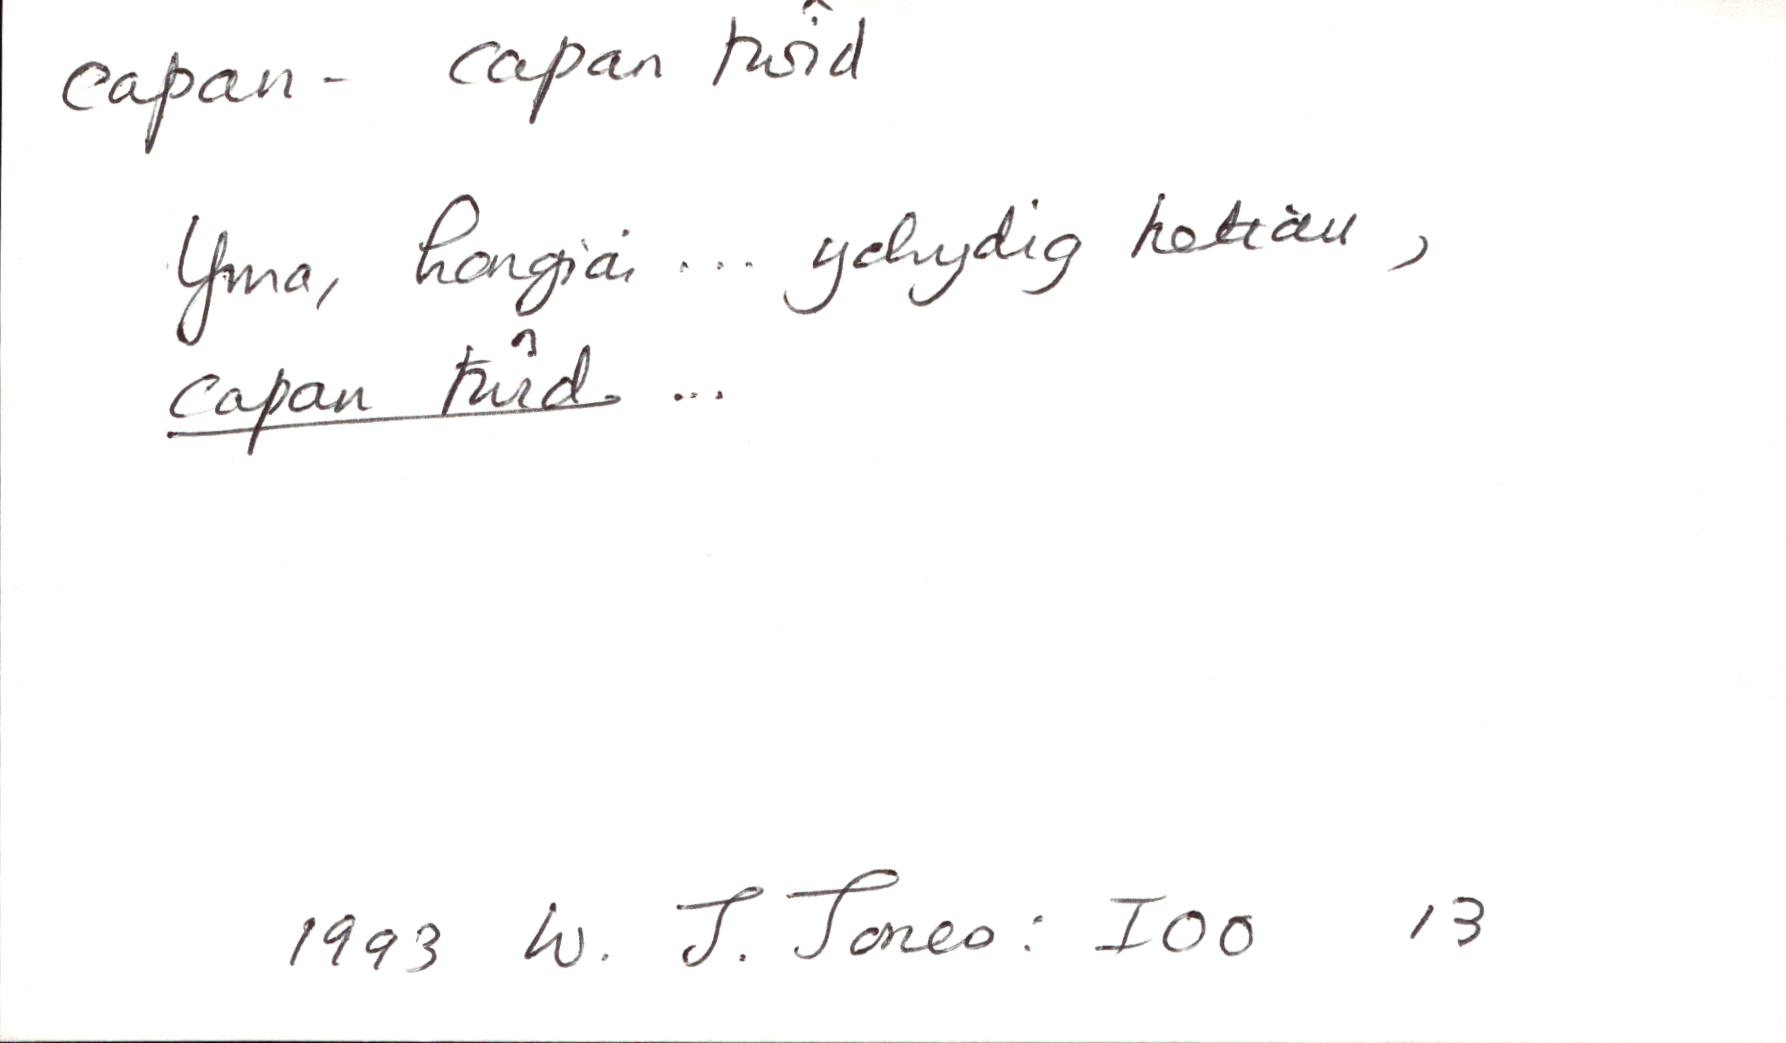 capan - capan twîd
Yma, hongiai ... ychydig hetiau,
capan twîd ...
1993 W. J. Jones: IOO 13